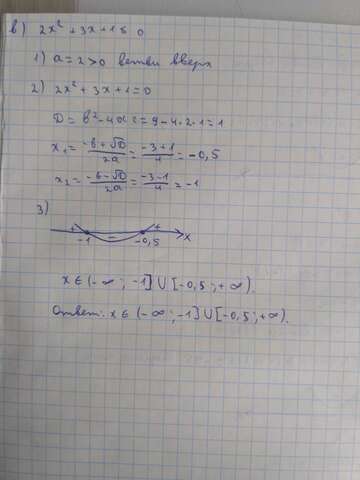 в) 2x² + 3x + 1 ≤ 0
1) a = 2 > 0 ветви вверх
2) 2x² + 3x + 1 = 0
D = b² - 4ac = 9 - 4·2·1 = 1
x₁ = (-b + √D)/2a = (-3+1)/4 = -0,5
x₂ = (-b - √D)/2a = (-3-1)/4 = -1
3)
+ - +
-1 -0,5 x
x ∈ (-∞; -1] ∪ [-0,5; +∞).
Ответ: x ∈ (-∞; -1] ∪ [-0,5; +∞).